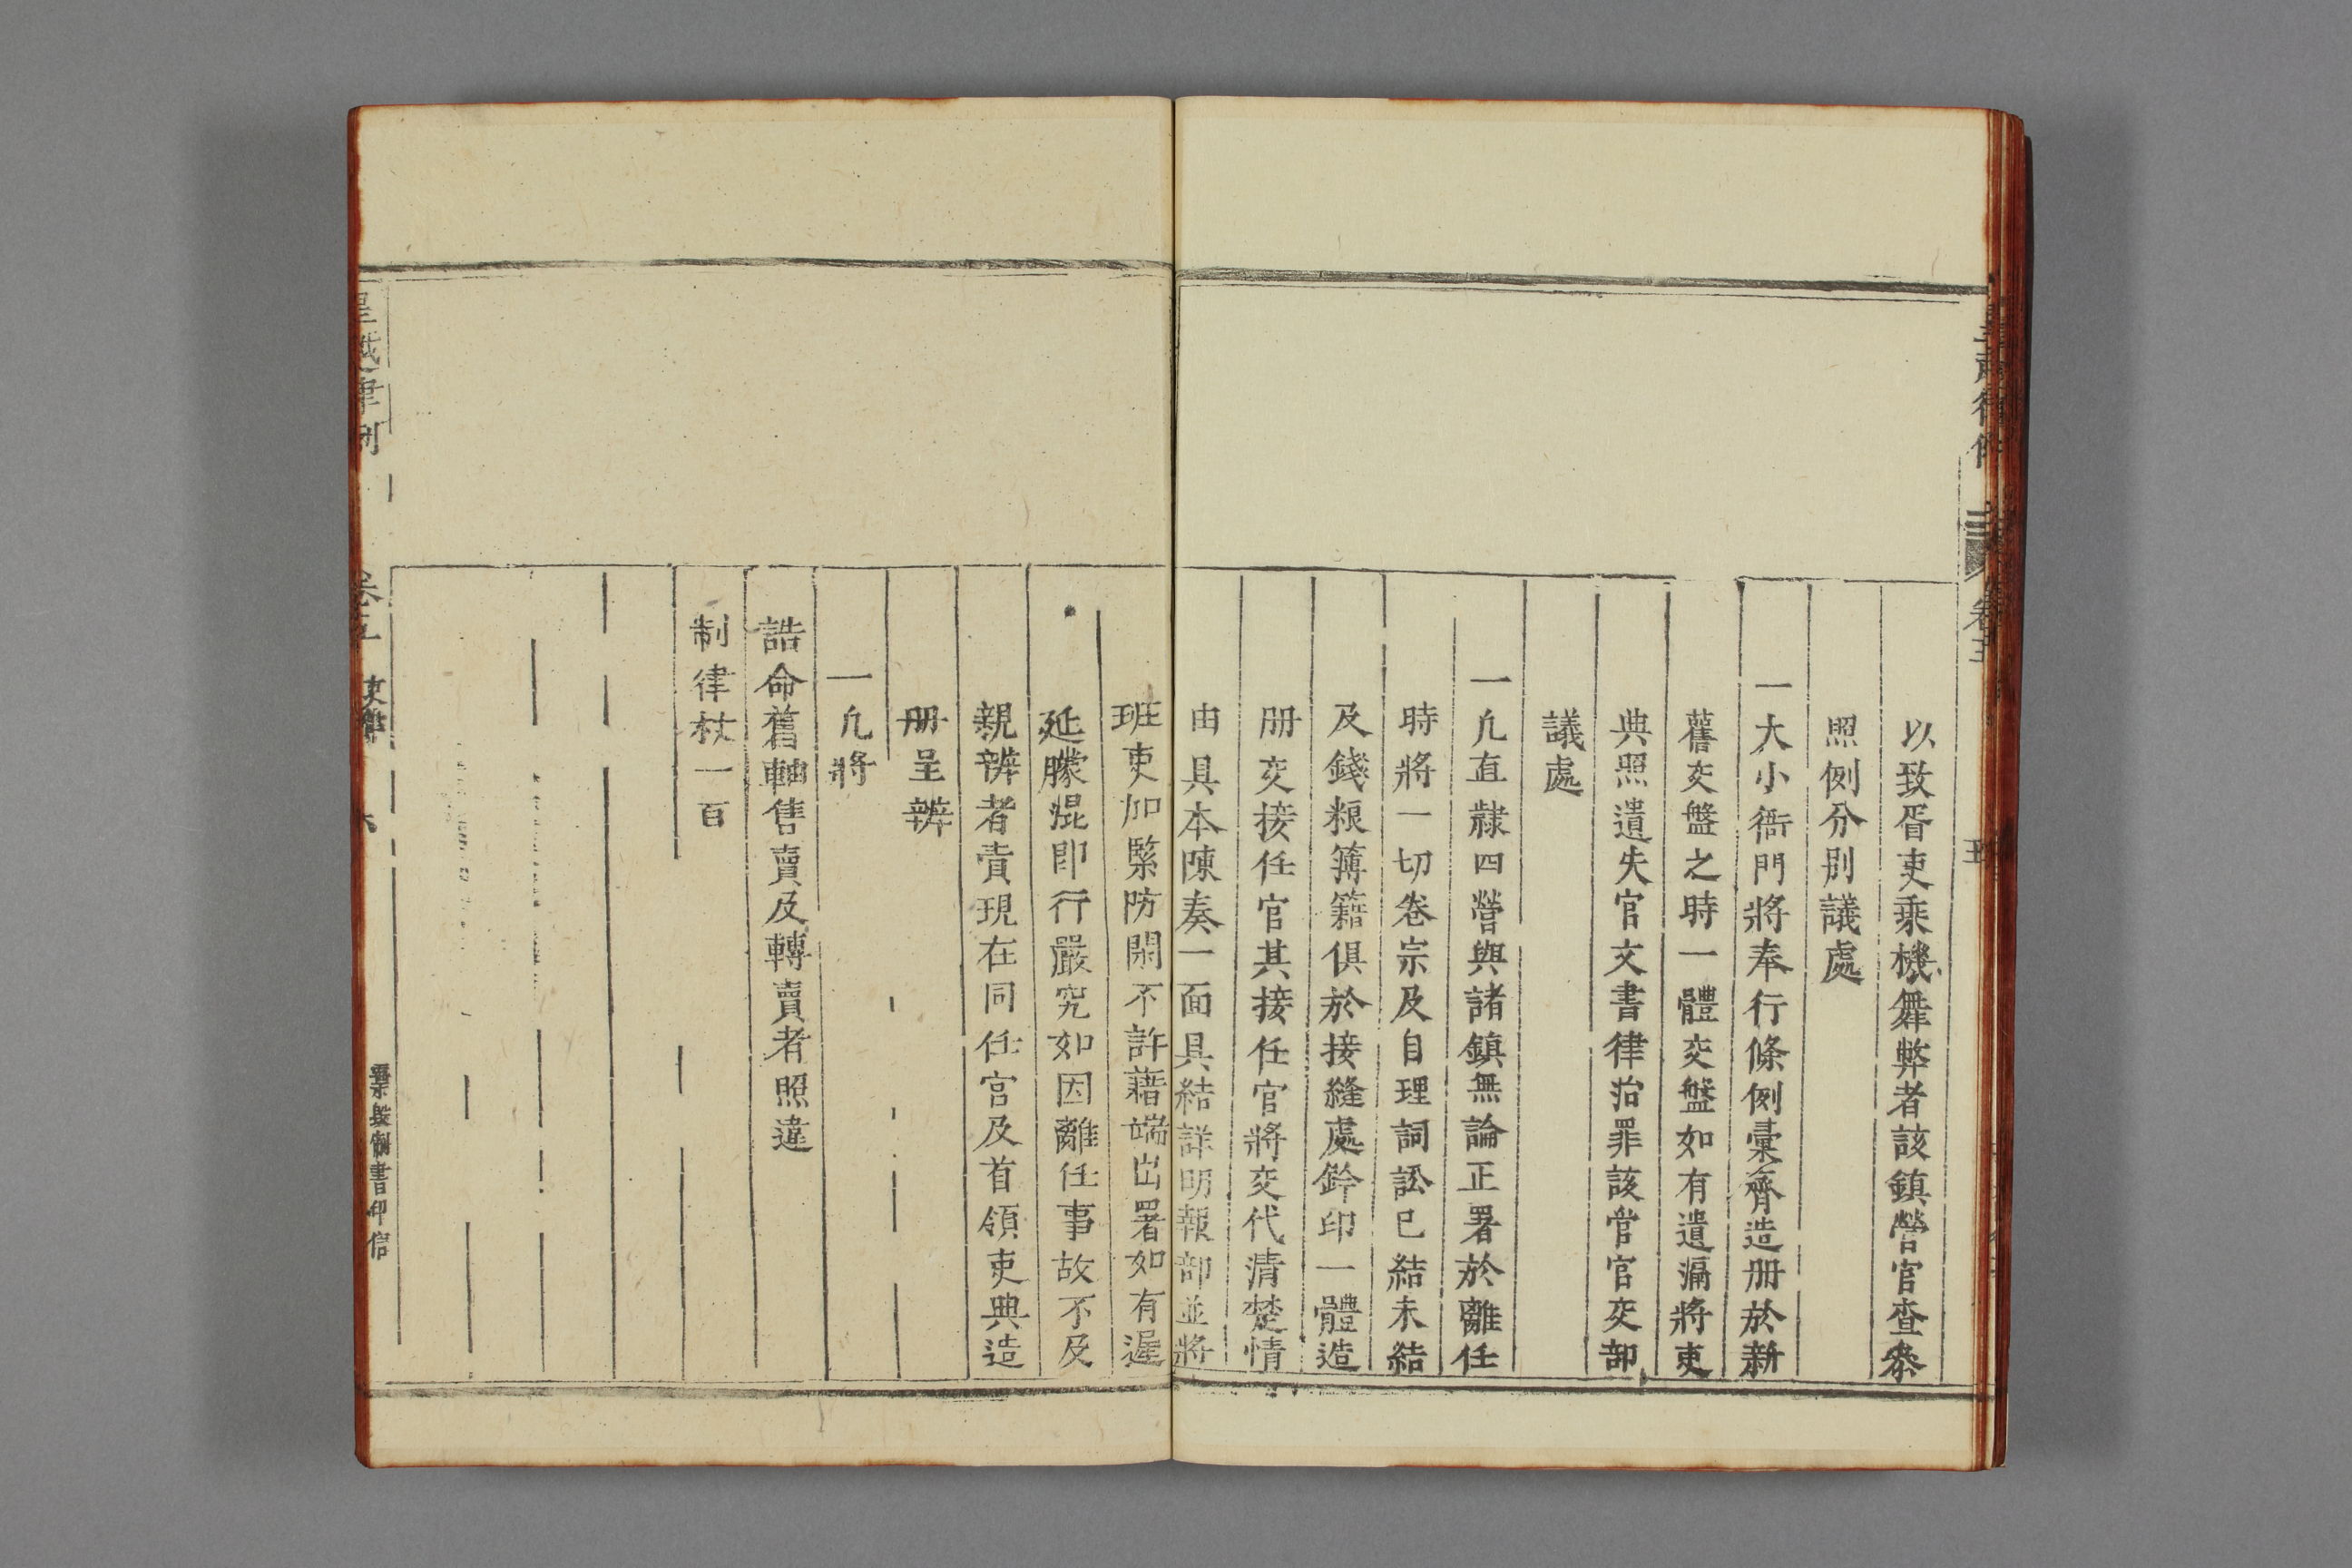 以致胥吏乘機舞弊者該鎮營官查叅
照例分别議處
一大小衙門將奉行條例彙齊造册於新
舊交盤之時一體交盤如有遺漏將吏
典照遺失官文書律治罪該管官交部
議處
一凢直隸四營與諸鎮無論正署於離任
時將一切卷宗及自理詞訟已結未結
及錢粮簿籍俱於接縫處鈐印一體造
册交接任官其接任官將交代清楚情
由具本陳奏一面具結詳明報部並將
班吏加緊防閑不許藉端出署如有遲
延朦混即行嚴究如因離任事故不及
親辦者責現在同任官及首領吏典造
册呈辦
一凢將
誥命舊軸售賣及轉賣者照違
制律杖一百
皇越律例 卷五 吏律 六 棄毀制書印信